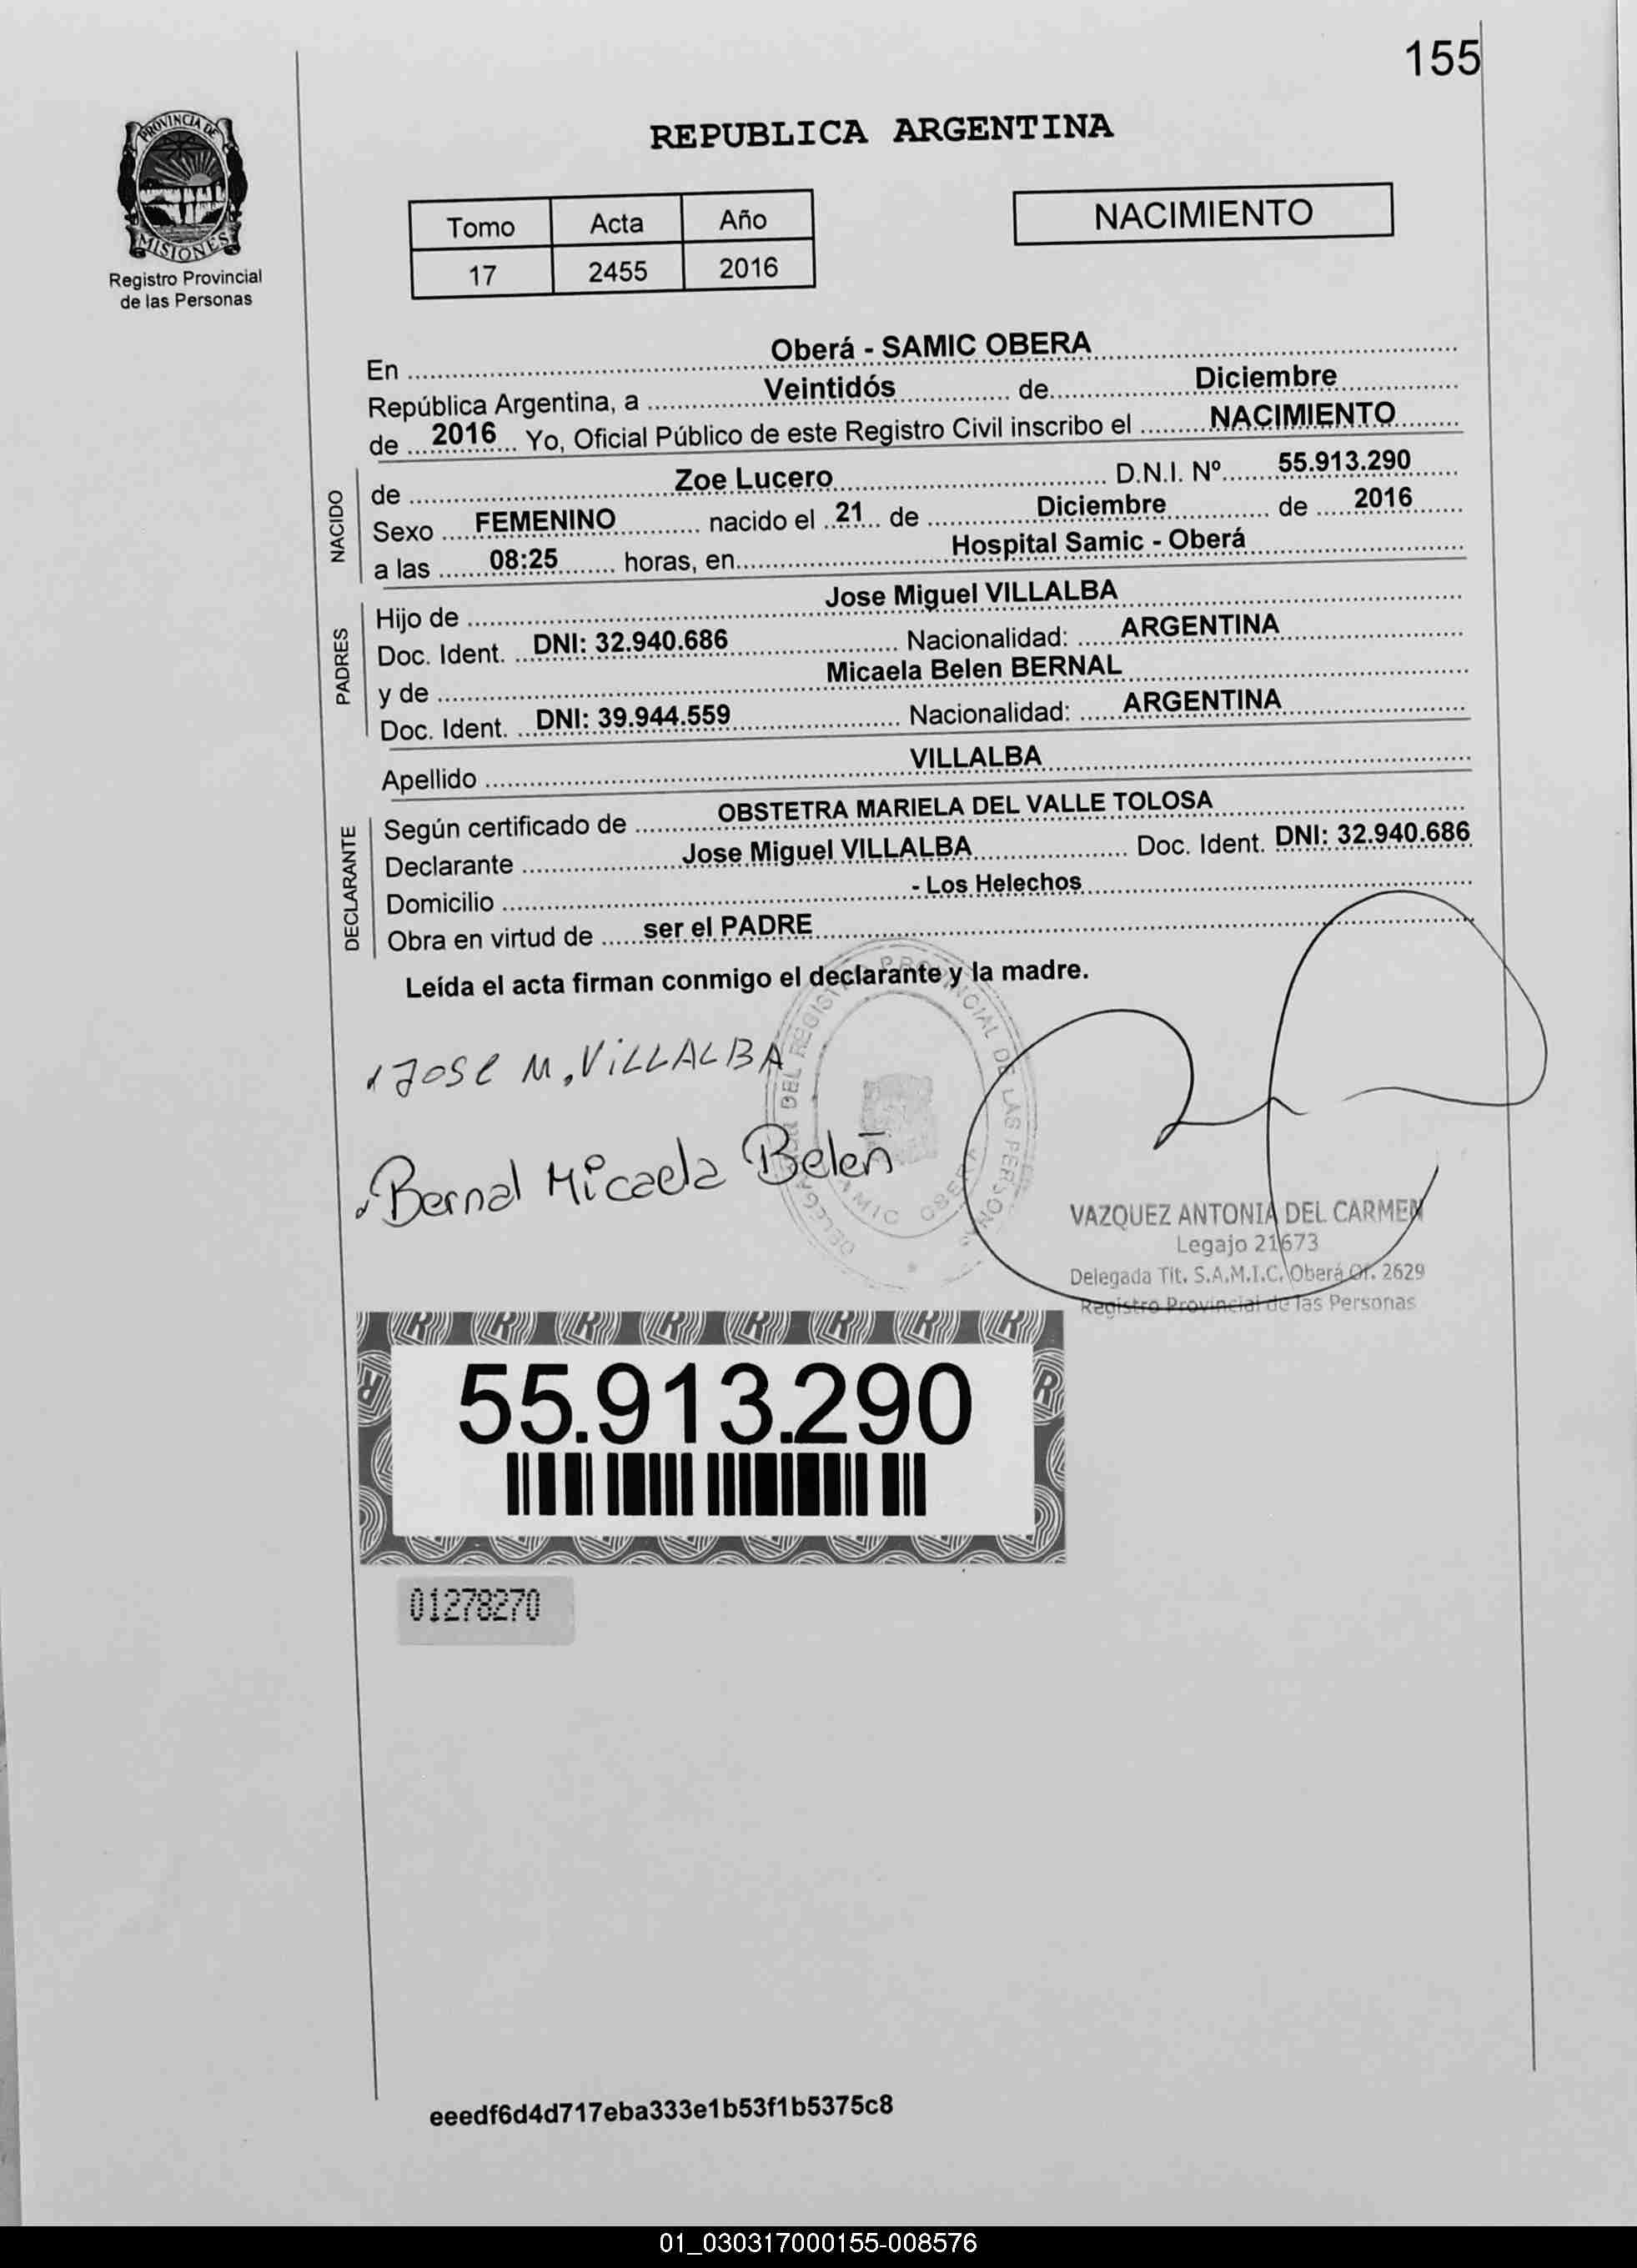 155
PROVINCIA DE
MISIONES
Registro Provincial
de las Personas
REPUBLICA ARGENTINA
Tomo Acta Año
17 2455 2016
NACIMIENTO
En Oberá - SAMIC OBERA
República Argentina, a Veintidós de Diciembre
de 2016 Yo, Oficial Público de este Registro Civil inscribo el NACIMIENTO
NACIDO
de Zoe Lucero D.N.I. Nº 55.913.290
Sexo FEMENINO nacido el 21 de Diciembre de 2016
a las 08:25 horas, en Hospital Samic - Oberá
PADRES
Hijo de Jose Miguel VILLALBA
Doc. Ident. DNI: 32.940.686 Nacionalidad: ARGENTINA
y de Micaela Belen BERNAL
Doc. Ident. DNI: 39.944.559 Nacionalidad: ARGENTINA
Apellido VILLALBA
DECLARANTE
Según certificado de OBSTETRA MARIELA DEL VALLE TOLOSA
Declarante Jose Miguel VILLALBA Doc. Ident. DNI: 32.940.686
Domicilio - Los Helechos
Obra en virtud de ser el PADRE
Leída el acta firman conmigo el declarante y la madre.
JOSE M. ViLLALBA
Bernal Micaela Belen
DEL REGISTRO PROVINCIAL DE LAS PERSONAS
SAMIC OBERA
VAZQUEZ ANTONIA DEL CARMEN
Legajo 21673
Delegada Tit. S.A.M.I.C. Oberá Of. 2629
Registro Provincial de las Personas
55.913.290
01278270
eeedf6d4d717eba333e1b53f1b5375c8
01_030317000155-008576